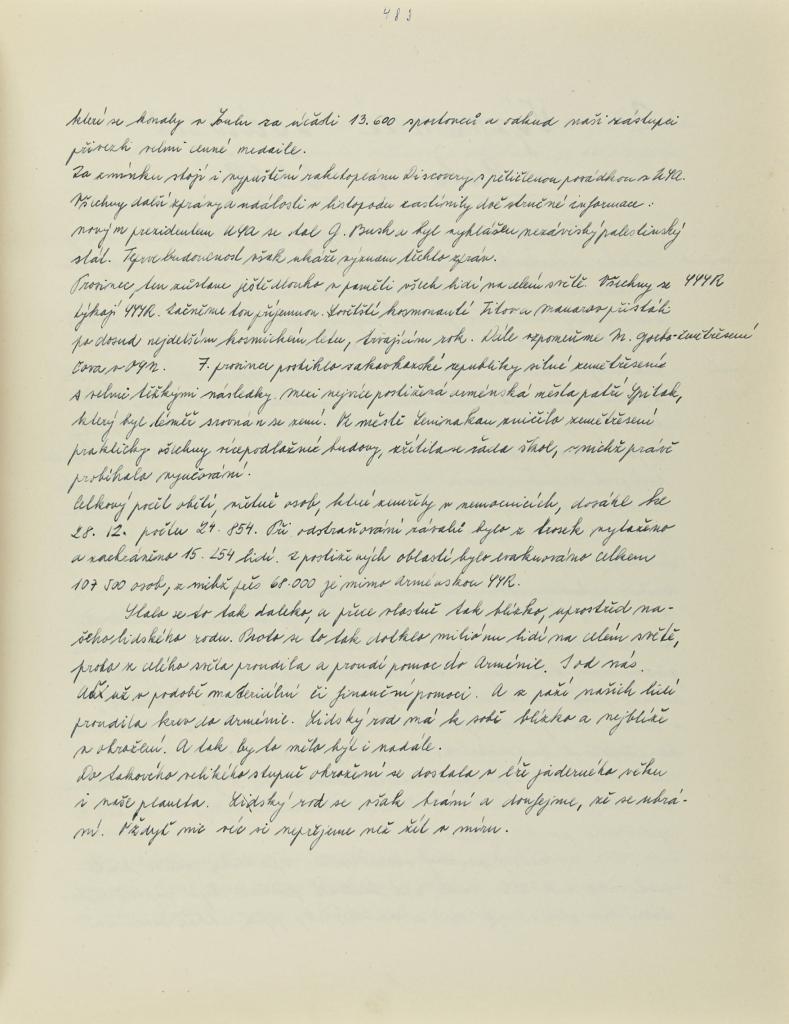 483
které se konaly v Soulu za účasti 13.600 sportovců a odkud naši zástupci
přivezli velmi cenné medaile.
Za zmínku stojí i vypuštění raketoplánu Discovery s pětičlenou posádkou z USA.
Všechny další zprávy a události v listopadu zastínily dvě stručné informace:
novým prezidentem USA se stal G. Bush a byl vyhlášen nezávislý palestinský
stát. Teprve budoucnost však ukáže význam těchto zpráv.
Prosinec, ten zůstane ještě dlouho v paměti všech lidí na celém světě. Všechny se SSSR
týkají SSSR. Začněme tou příjemnou. Sovětští kosmonauté Titov a Manarov přistáli
po dosud nejdelším kosmickém letu, trvajícím rok. Dále vzpomeňme M. Gorba- zemětřesení
čova v OSN. 7. prosince postihlo zakavkazské republiky silné zemětřesení
s velmi těžkými následky. Mezi nejvíce postižená arménská města patří Spitak,
který byl téměř srovnán se zemí. Ve městě Leninakan zničilo zemětřesení
prakticky všechny vícepodlažní budovy, zřítila se řada škol, v nichž právě
probíhalo vyučování.
Celkový počet obětí, včetně osob, které zemřely v nemocnicích, dosáhl ke
28. 12. počtu 24.854. Při odstraňování závalů bylo z trosek vytaženo
a zachráněno 15.254 lidí. Z postižených oblastí bylo evakuováno celkem
107 500 osob, z nichž přes 68.000 je mimo Arménskou SSR.
Stalo se to tak daleko, a přece vlastně tak blízko, uprostřed na-
šeho lidského rodu. Proto se to tak dotklo miliónu lidí na celém světě,
proto z celého světa proudila a proudí pomoc do Arménie. I od nás.
Ať už v podobě materiální či finanční pomoci. A z paží našich lidí
proudila krev do Arménie. Lidský rod má k sobě blízko a nejblíže
v ohrožení. A tak by to mělo být i nadále.
Do takového velikého stupně ohrožení se dostala v éře jaderného věku
i naše planeta. Lidský rod se však brání a doufejme, že se ubrá-
ní. Vždyť nic víc si nepřejeme než žít v míru.